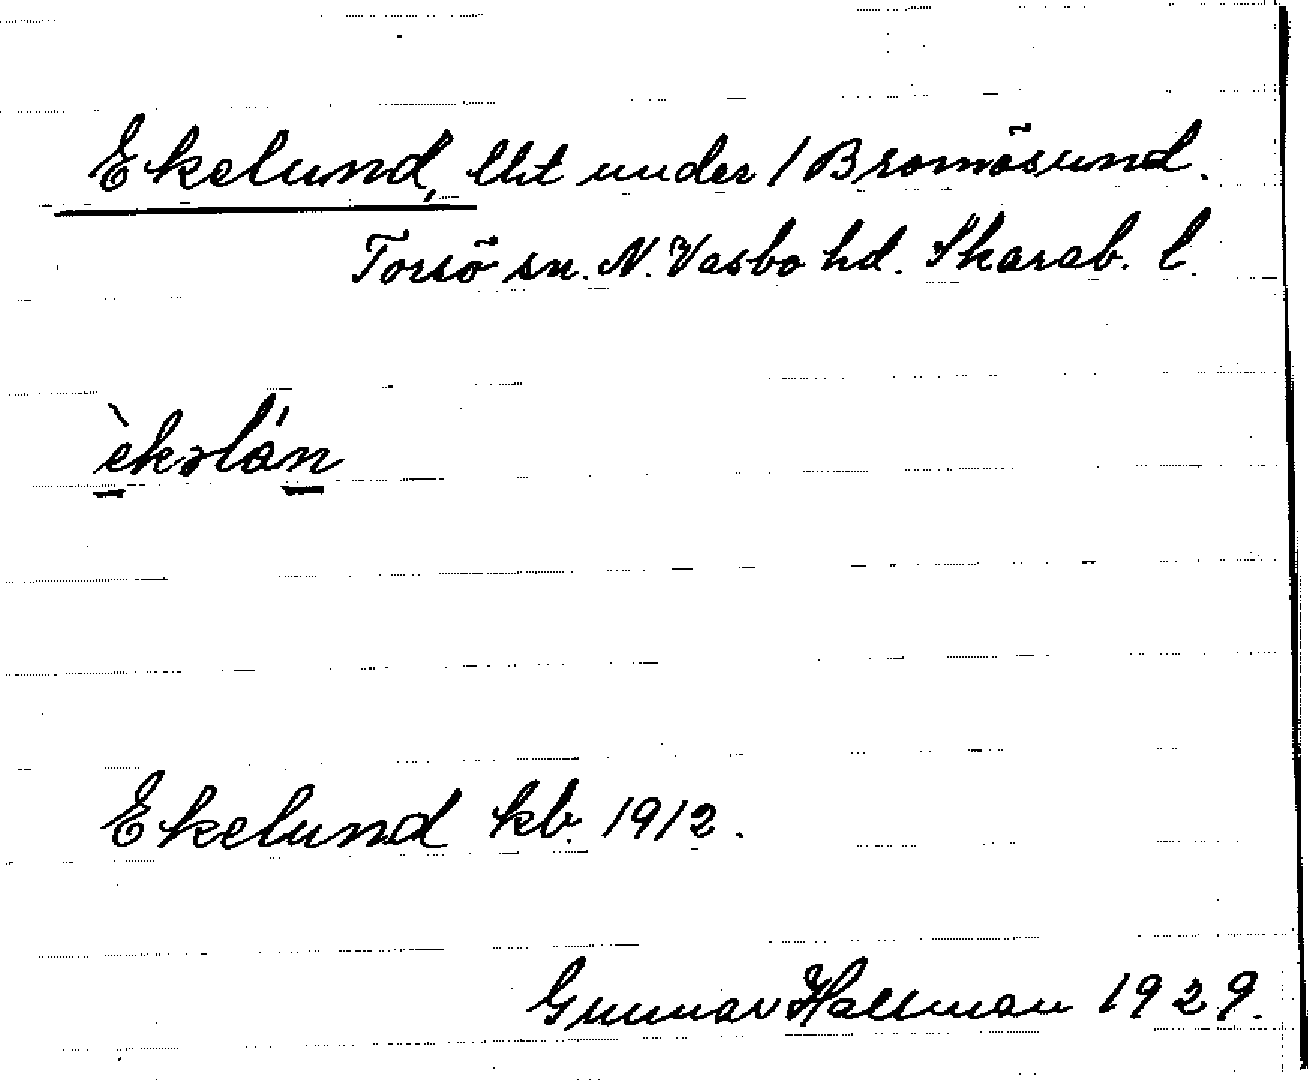 Ekelund, lht under 1 Bromösund.
Torsö sn. N. Vasbo hd. Skarab. l.
èkəlán
Ekelund kb. 1912.
Gunnar Hallman 1929.